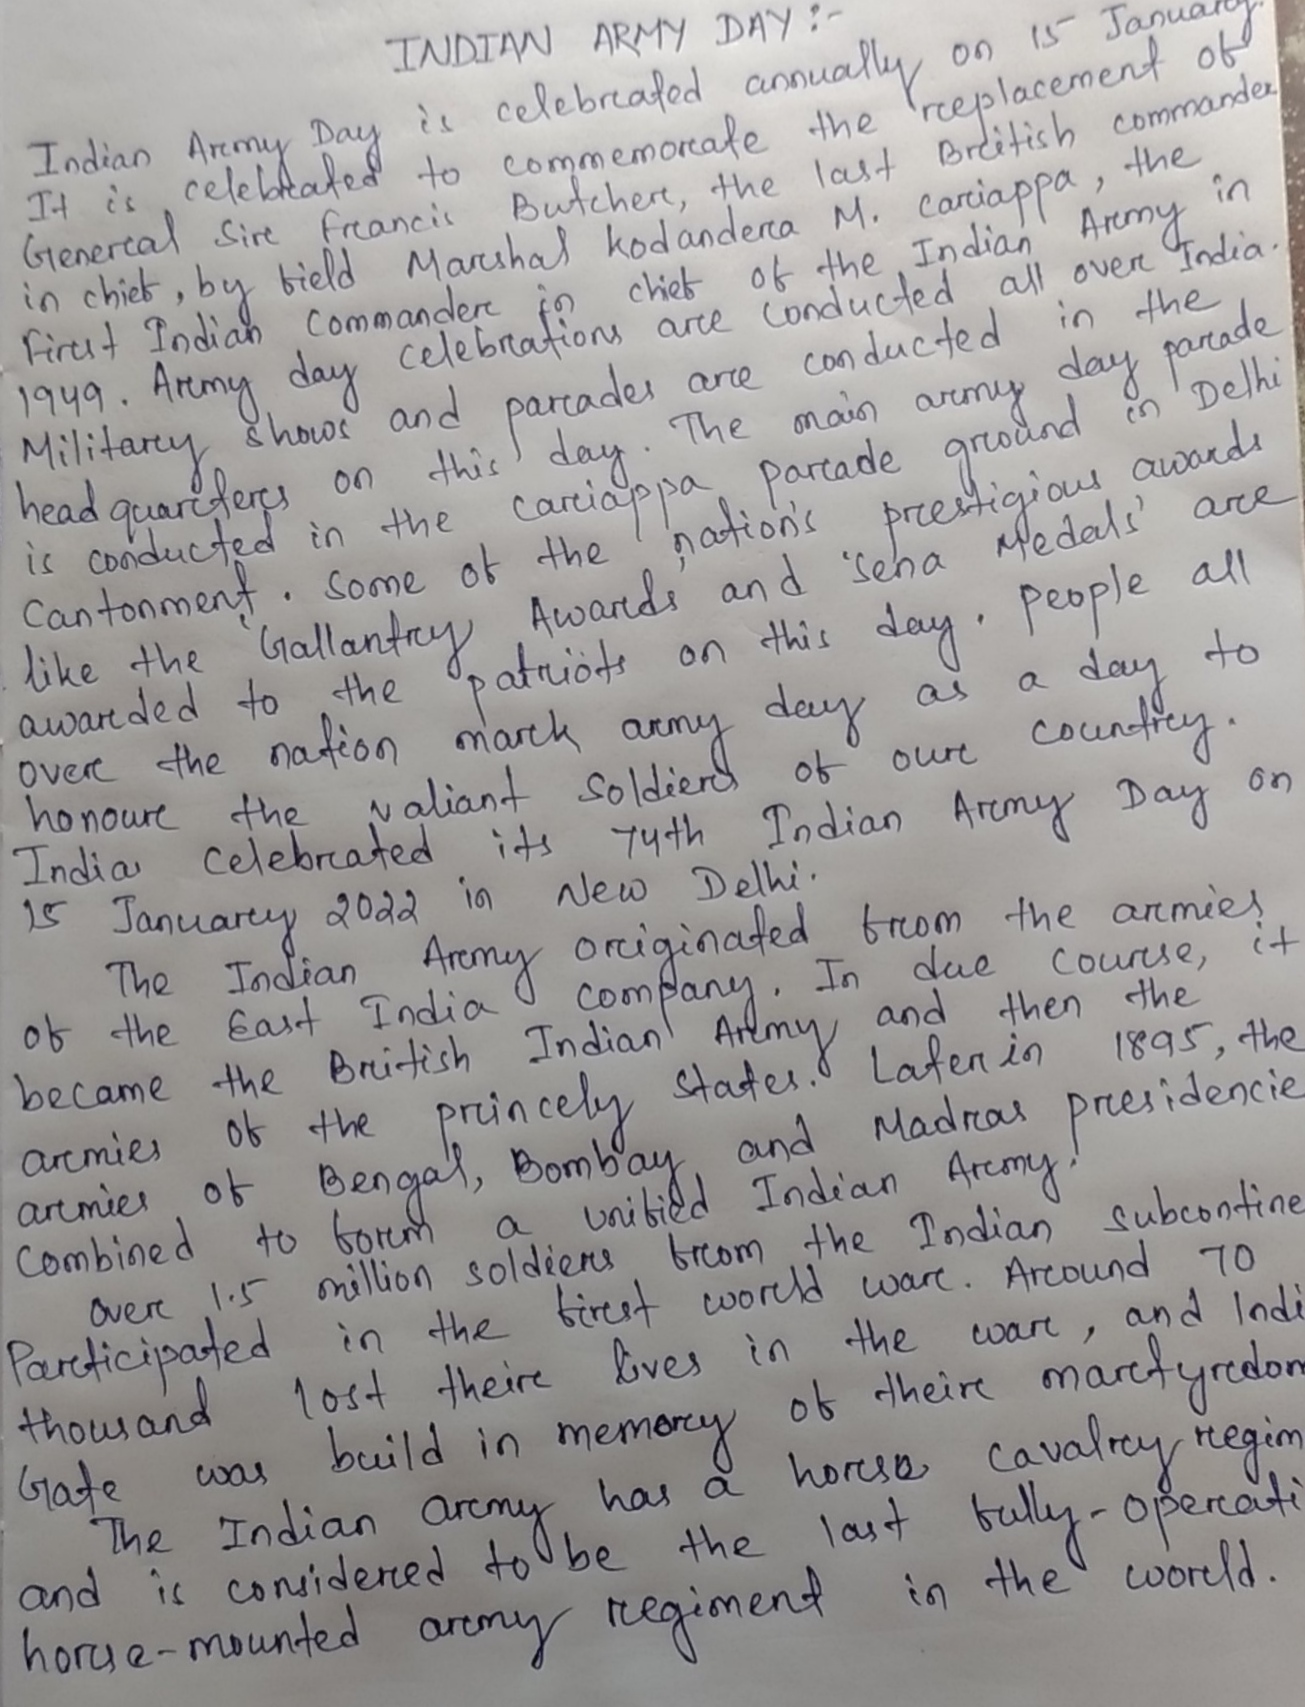 INDIAN ARMY DAY :-
Indian Army Day is celebrated annually on 15 January.
It is celebrated to commemorate the replacement of
General Sir Francis Butcher, the last British commander
in chief, by field Marshal Kodandera M. cariappa, the
first Indian Commander in chief of the Indian Army in
1949. Army day celebrations are conducted all over India.
Military shows and parades are conducted in the
headquarters on this day. The main army day parade
is conducted in the cariappa parade ground in Delhi
Cantonment. Some of the nation's prestigious awards
like the 'Gallantry Awards' and 'Sena Medals' are
awarded to the patriots on this day. People all
over the nation mark army day as a day to
honour the valiant soldiers of our country.
India celebrated its 74th Indian Army Day on
15 January 2022 in New Delhi.
The Indian Army originated from the armies
of the East India company. In due course, it
became the British Indian Army and then the
armies of the princely states. Later in 1895, the
armies of Bengal, Bombay and Madras presidencie
Combined to form a unified Indian Army.
Over 1.5 million soldiers from the Indian subcontine
Participated in the first world war. Around 70
thousand lost their lives in the war, and Indi
Gate was build in memory of their martyrdom
The Indian army has a horse cavalry regim
and is considered to be the last fully-operati
horse-mounted army regiment in the world.